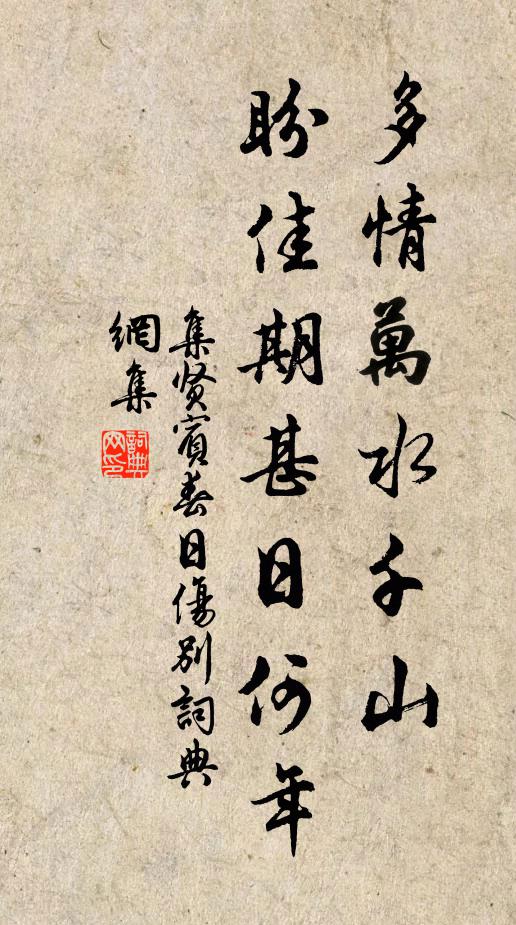 多情萬水千山
盼佳期甚日何年
集贤賓春日傷別詞典
網集
詞典
网印